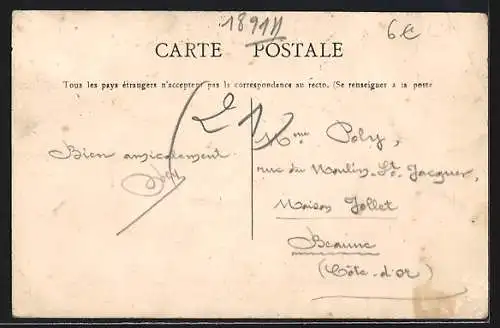 18911
6€
CARTE POSTALE
Tous les pays étrangers n'acceptent pas la correspondance au recto. (Se renseigner à la poste
21
Mme Poly,
Bien amicalement
rue du Moulin St. Jacques,
Maison Jollet
Beaune
(Côte-d'or)